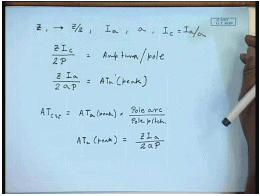 Z, → Z/2, Ia, a, Ic = Ia/a
Z Ic / 2P = Amp turn/pole
Z Ia / 2aP = ATa (peak)
ATcw = ATa (peak) × Pole arc / Pole pitch
ATa (peak) = Z Ia / 2aP